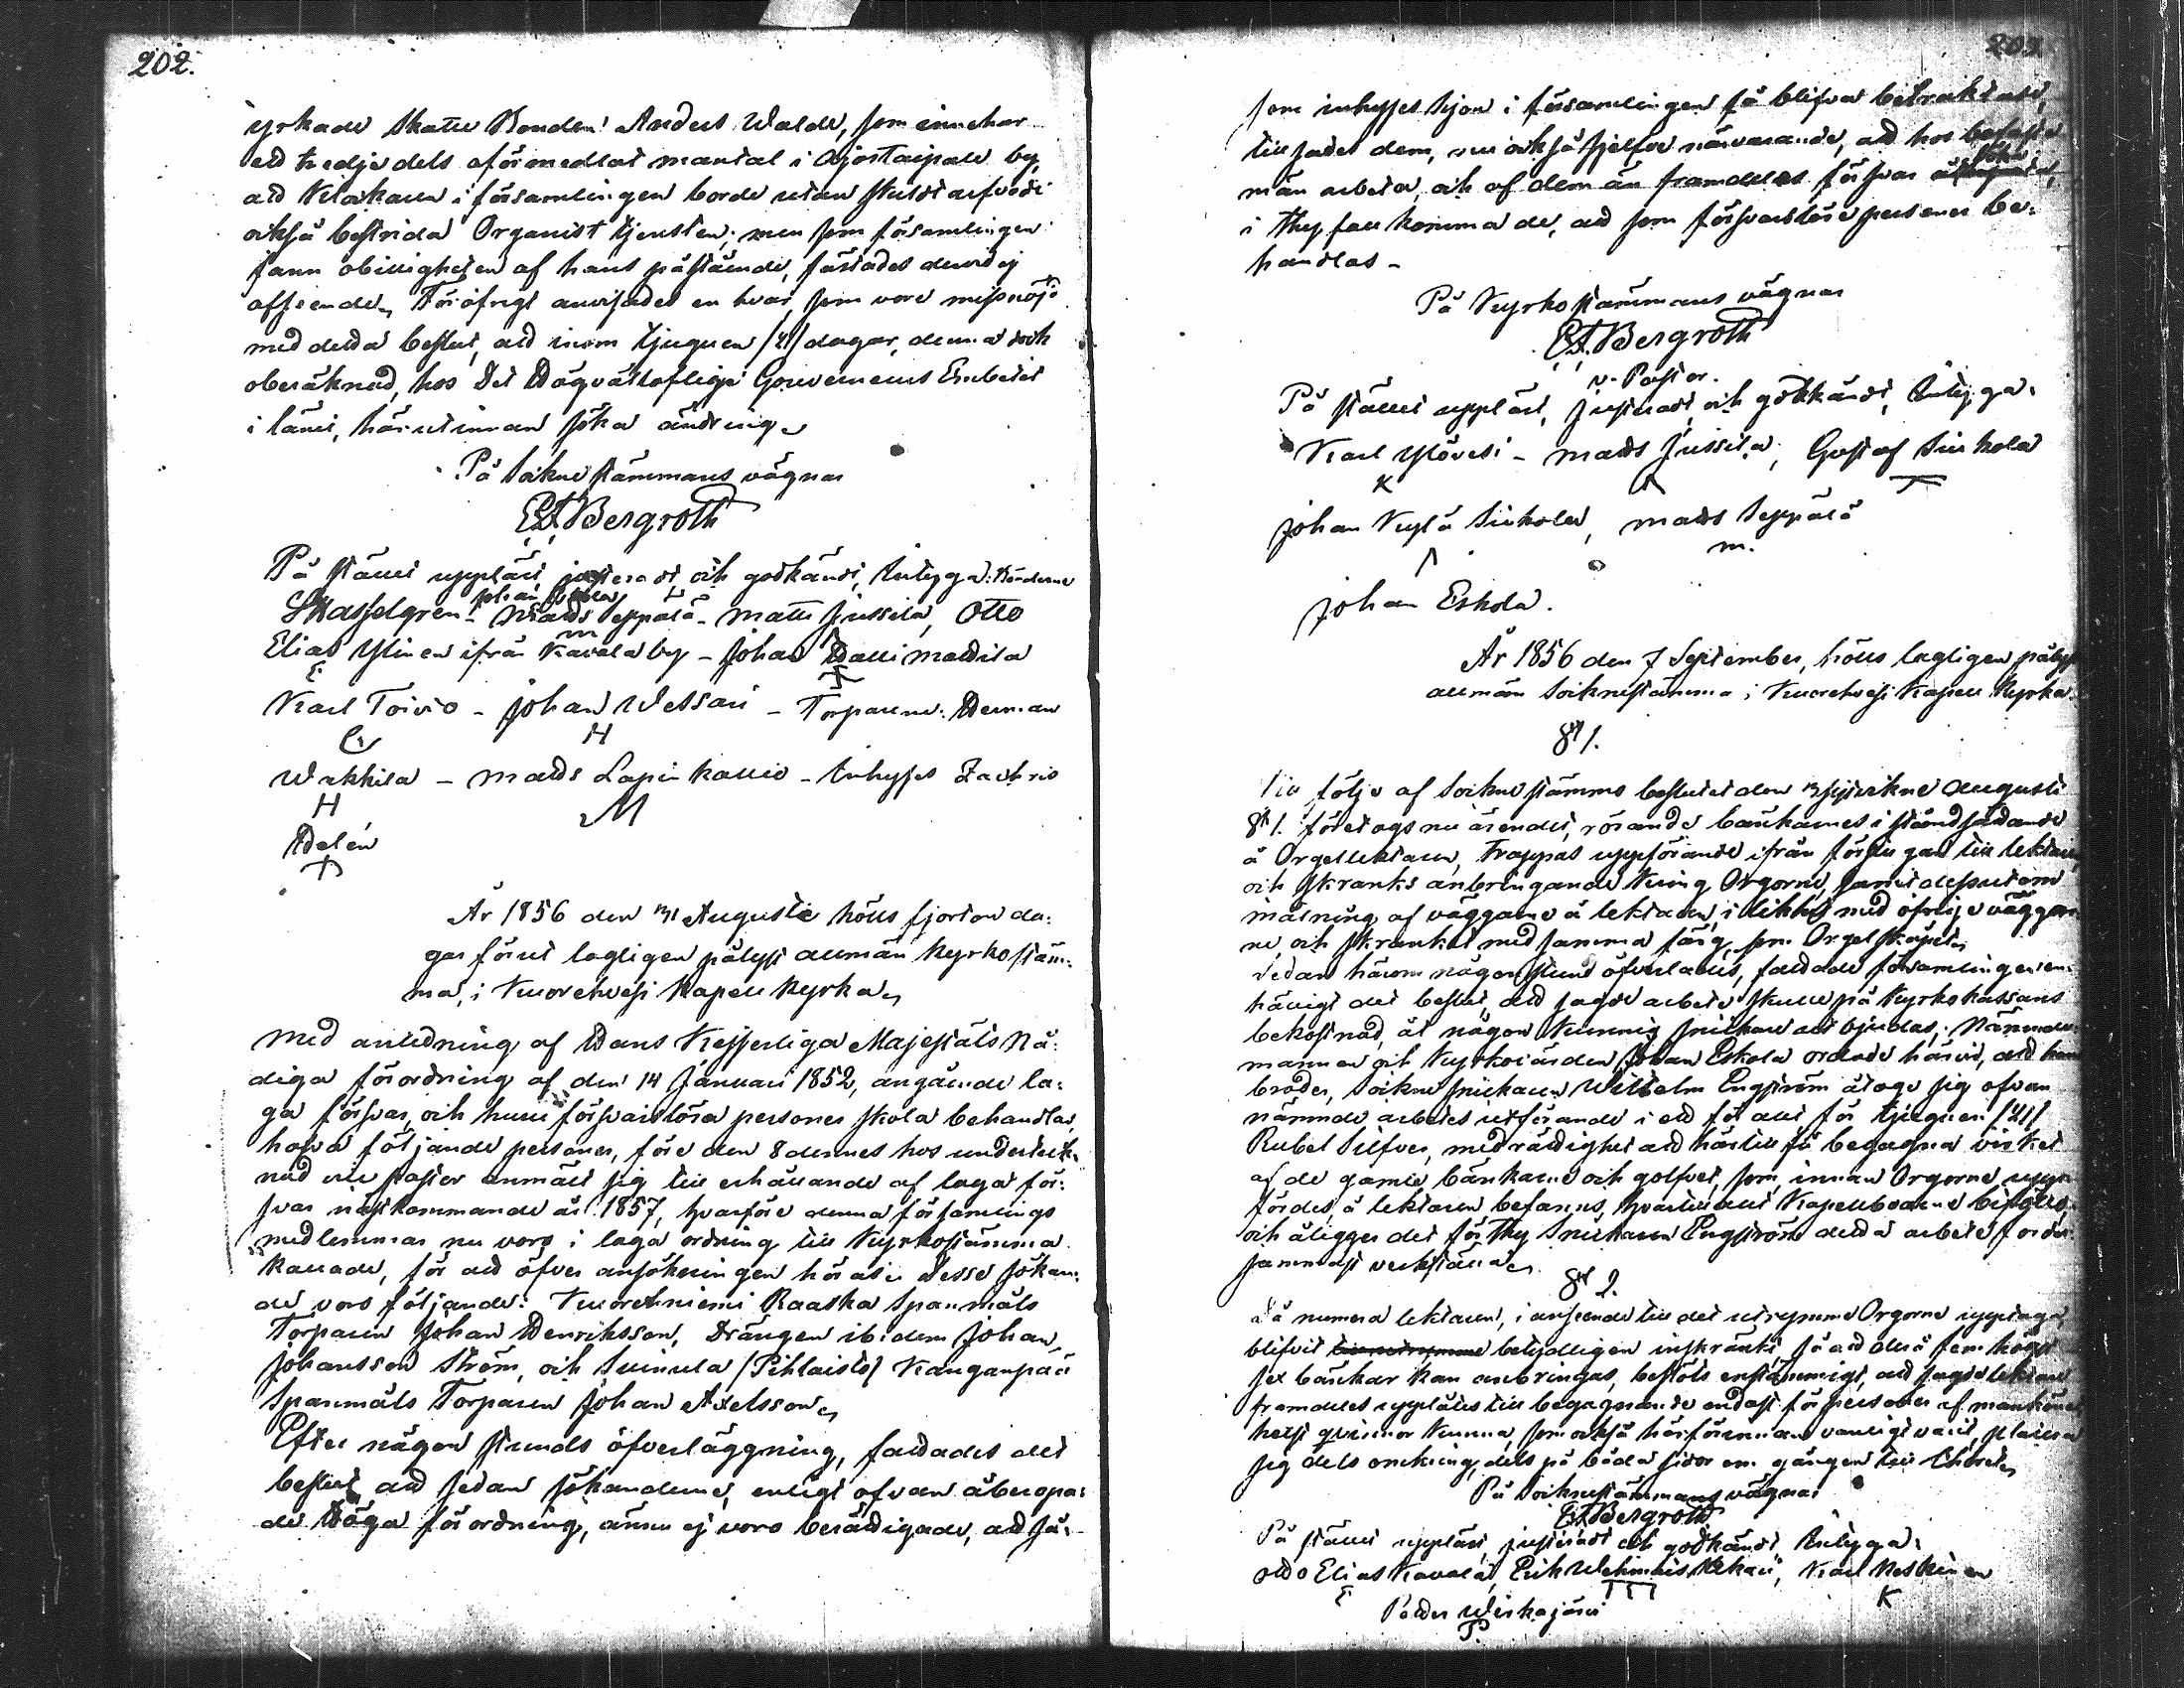 202.
yrkade Skatte Bonden Anders Walde, som innehar
ett tredjedels oförmedlat mantal i Ajostaipale by,
att Klockaren i församlingen borde utan skildt arfvode
också bestrida Organist tjensten; men som församlingen
fann obilligheten af hans påstående, fästades dervid ej
afseende. Föröfrigt anvisades en hvar, som vore missnöjd
med detta beslut, att inom tjuguen /21/ dagar, denna dock
oberäknad, hos Det Högvällofliga Gouvernements Embetet
i länet, härutinnan söka ändring.
På Sockne stämmans vägnar
E.A. Bergroth
På stället uppläst, justeradt och godkändt, intyga: Bönderne
S. Hasselgren - Johan Eskola - Matts Seppälä - Matts Jussila, Otto
m
Elias Ylinen ifrån Kavala by - Johan Halli Mattila
E
Karl Toivo - Johan Wessari - Torparene: Herman
H
Wakkila - Matts Lapinkallio - Inhyses Zachris
H M
Helén
År 1856 den 31 Augusti hölls fjorton da-
gar förut lagligen pålyst allmän Kyrkostäm-
ma, i Kuorehvesi Kapell Kyrka.
Med anledning af Hans Kejserliga Majestäts Nå-
diga förordning af den 14 Januari 1852, angående la-
ga försvar, och huru försvarslösa personer skola behandlas,
hafva följande personer, före den 8 dennes hos underteck-
nad vice pastor anmält sig till erhållande af laga för-
svar nästkommande år 1857, hvarföre denna församlings
medlemmar nu voro i laga ordning till Kyrkostämma
kallade, för att öfver ansökningen höras. Desse sökan-
de voro följande: Kuorehniemi Raaska Spanmåls
Torparen Johan Henriksson, Drängen ibidem Johan
Johansson Ström, och Suinula /Pihlaisto/ Kanganpää
Spanmåls Torparen Johan Axelsson.
Efter någon stunds öfverläggning, fattades det
beslut, att sedan sökanderne, enligt ofvan åberopa-
de Höga förordning, ännu ej voro berättigade, att så-
203
som inhyses hjon i församlingen få blifva betraktade,
tillsades dem, nu också sjelfve närvarande, att hos besutne
män arbeta, och af dem än framdeles försvar söka
i thy fall komma de, att som försvarslöse personer be-
handlas -
På Kyrkostämmans vägnar
E.A. Bergroth
v. Pastor.
På stället uppläst, justeradt och godkändt, intyga:
Karl Ylövesi - Matts Jussila, Gustaf Siukola
K
Johan Kylä Siukola, Matts Seppälä
m.
Johan Eskola.
År 1856 den 7 September, hölls lagligen pålyst
allmän Socknestämma i Kuorehvesi Kapell Kyrka.
§ 1.
Till följe af Sockne stämmo beslutet den sistvikne Augusti
§ 1. företogs nu ärendet, rörande bänkarnes i stånd sättande
å Orgelläktaren, Trappas uppförande ifrån förstugan till läktaren
och skranks anbringande kring Orgorne, samt dessutom
målning af väggarne å läktaren, i likhet med öfrige väggar-
ne, och skranket med samma färg, som Orgelskåpet.
Sedan härom någon stund öfverlades, fattade församlingen en-
hälligt det beslut, att sagde arbete skulle på Kyrkokassans
bekostnad, åt någon kunnig snickare utbjudas; Nämnde-
mannen och Kyrkovärden, Johan Eskola ordade härvid, att hans
broder, Sockne snickaren Wilhelm Engström åtoge sig ofvan
nämnde arbetes utförande i ett för allt för tjuguen /21/
Rubel Silfver, med rättighet att härtill få begagna virket
af de gamle bänkarne och golfvet, som, innan Orgorne upp-
fördes, å läktaren befanns, hvartill allt Kapellboerne biföllo,
och åligger det för thy Snickaren Engström detta arbete
sammast verkställa.
§ 2.
Då numera läktaren, i anseende till det utrymme Orgorne upptaga,
blifvit betydligen inskränkt, så att derå fem högst
sex bänkar kan anbringas, beslöts enstämmigt, att sagde läktare
framdeles upplåtes till begagnande endast för personer af mankönet
helst qvinnor kunna, som också härförinnan vanligt varit, placera
sig dels omkring, dels på båda sidor om gången till Choret.
På Socknestämmans vägnar
E.A. Bergroth
På stället uppläst, justeradt och godkändt, intyga:
Otto Elias Kavala, Erik Wehmais Ukari, Karl Keskinen
E III K
Petter Wirkajärvi
P